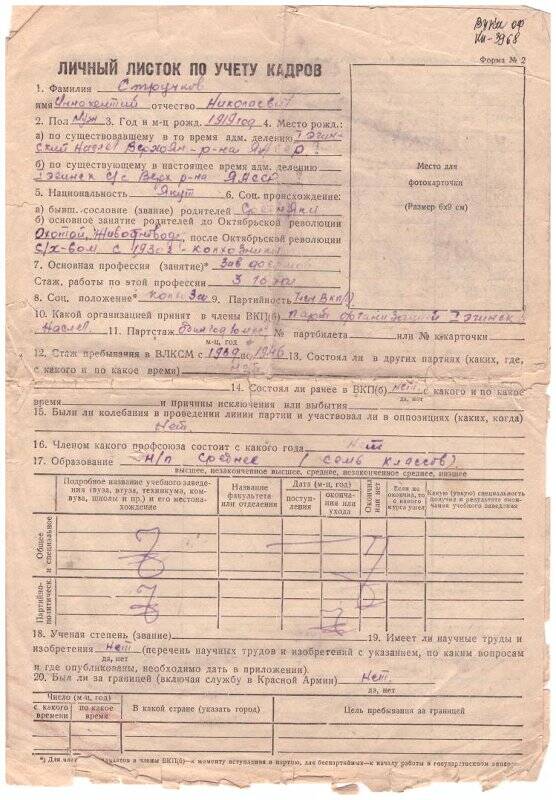 ВУКМ ОФ
КП-3968
Форма № 2
ЛИЧНЫЙ ЛИСТОК ПО УЧЕТУ КАДРОВ
1. Фамилия Стручков
имя Иннокентий отчество Николаевич
2. Пол муж 3. Год и м-ц рожд. 1919 год 4. Место рожд.:
а) по существовавшему в то время адм. делению Эгин-
ский Наслег Верхоян-р-на ЯАССР
б) по существующему в настоящее время адм. делению
Эгинск с/с Верх р-на ЯАССР
5. Национальность Якут 6. Соц. происхождение:
а) бывш. сословие (звание) родителей Середняки
б) основное занятие родителей до Октябрьской революции
Охотой, Животновод., после Октябрьской революции
с/х-вом с 1930г - колхозники
7. Основная профессия (занятие)* Зав фермой
Стаж, работы по этой профессии 3 года
8. Соц. положение* колхоз 9. Партийность Член ВКП(б)
10. Какой организацией принят в члены ВКП(б) парт организацией Эгинск
Наслег 11. Партстаж № партбилета или № к-карточки
м-ц, год
12. Стаж пребывания в ВЛКСМ с 1939 по 1946 13. Состоял ли в других партиях (каких, где,
с какого и по какое время) нет
14. Состоял ли ранее в ВКП(б) нет с какого и по какое
да, нет
время и причины исключения или выбытия
15. Были ли колебания в проведении линии партии и участвовал ли в оппозициях (каких, когда)
Нет
16. Членом какого профсоюза состоит с какого года Нет
17. Образование н/п среднее (семь классов)
высшее, незаконченное высшее, среднее, незаконченное среднее, низшее
Подробное название учебного заведения (вуза, втуза, техникума, комвуза, школы и пр.) и его местонахождение
Название факультета или отделения
Дата (м-ц, год)
поступления
окончания или ухода
Окончил или нет
Если не окончил, то с какого курса ушел
Какую (узкую) специальность получил в результате окончания учебного заведения
Общее и специальное
Партийно-политическ.
18. Ученая степень (звание) 19. Имеет ли научные труды и
изобретения нет (перечень научных трудов и изобретений с указанием, по каким вопросам
да, нет
и где опубликованы, необходимо дать в приложении).
20. Был ли за границей (включая службу в Красной Армии) Нет.
да, нет
Число (м-ц, год)
с какого времени
по какое время
В какой стране (указать город)
Цель пребывания за границей
Место для
фотокарточки
(Размер 6х9 см)
в члены ВКП(б)—к моменту вступления в партию, для беспартийных—к началу работы в государственном аппарате